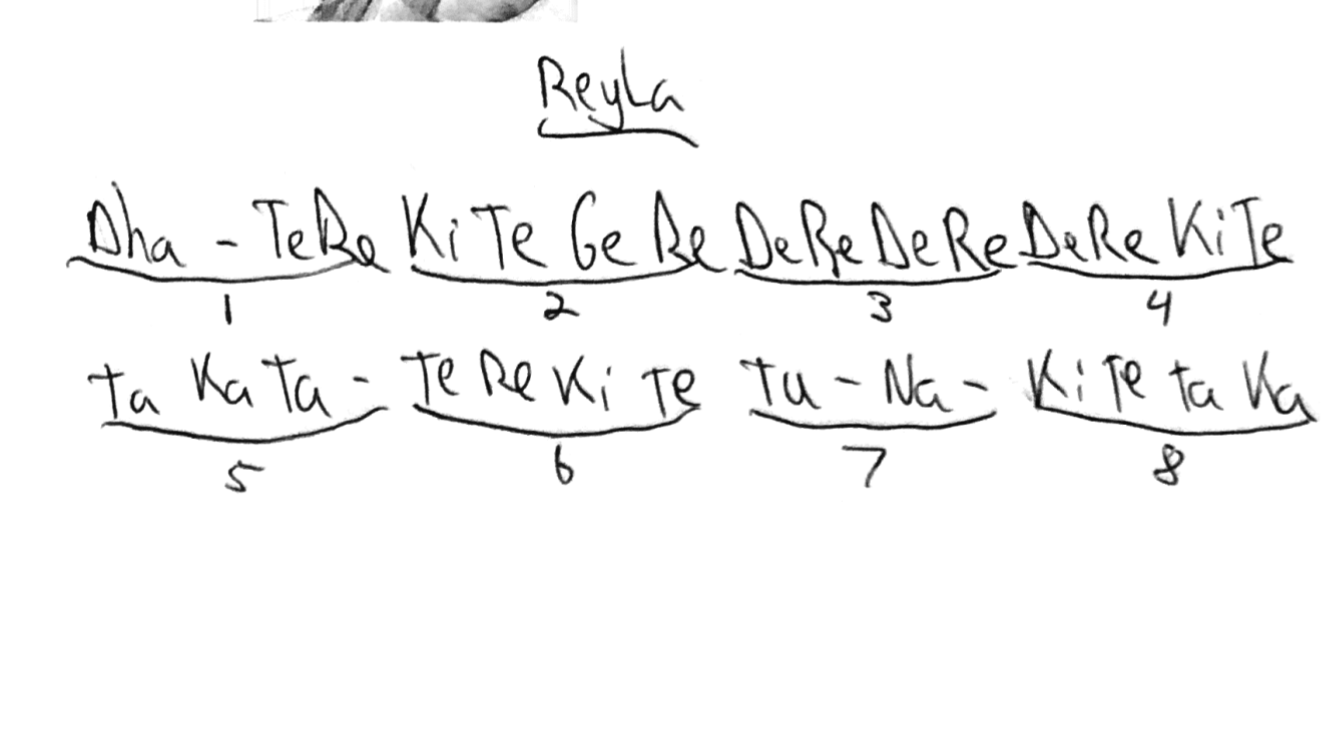 ReyLa
Dha - TeRe KiTe GeRe DeReDeRe DeReKiTe
1 2 3 4
ta Ka Ta - TeReKiTe Tu - Na - KiTe ta Ka
5 6 7 8